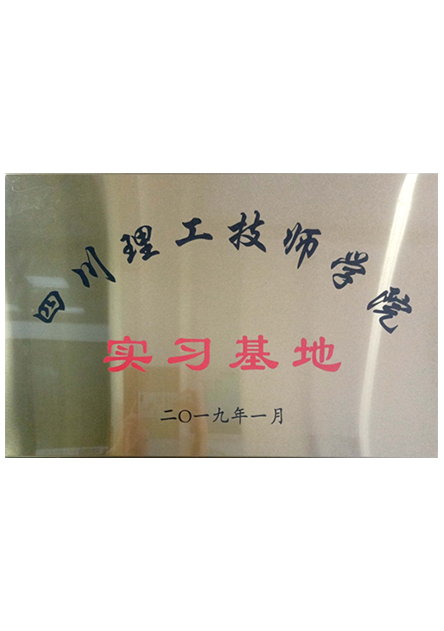 四川理工技师学院
实习基地
二〇一九年一月